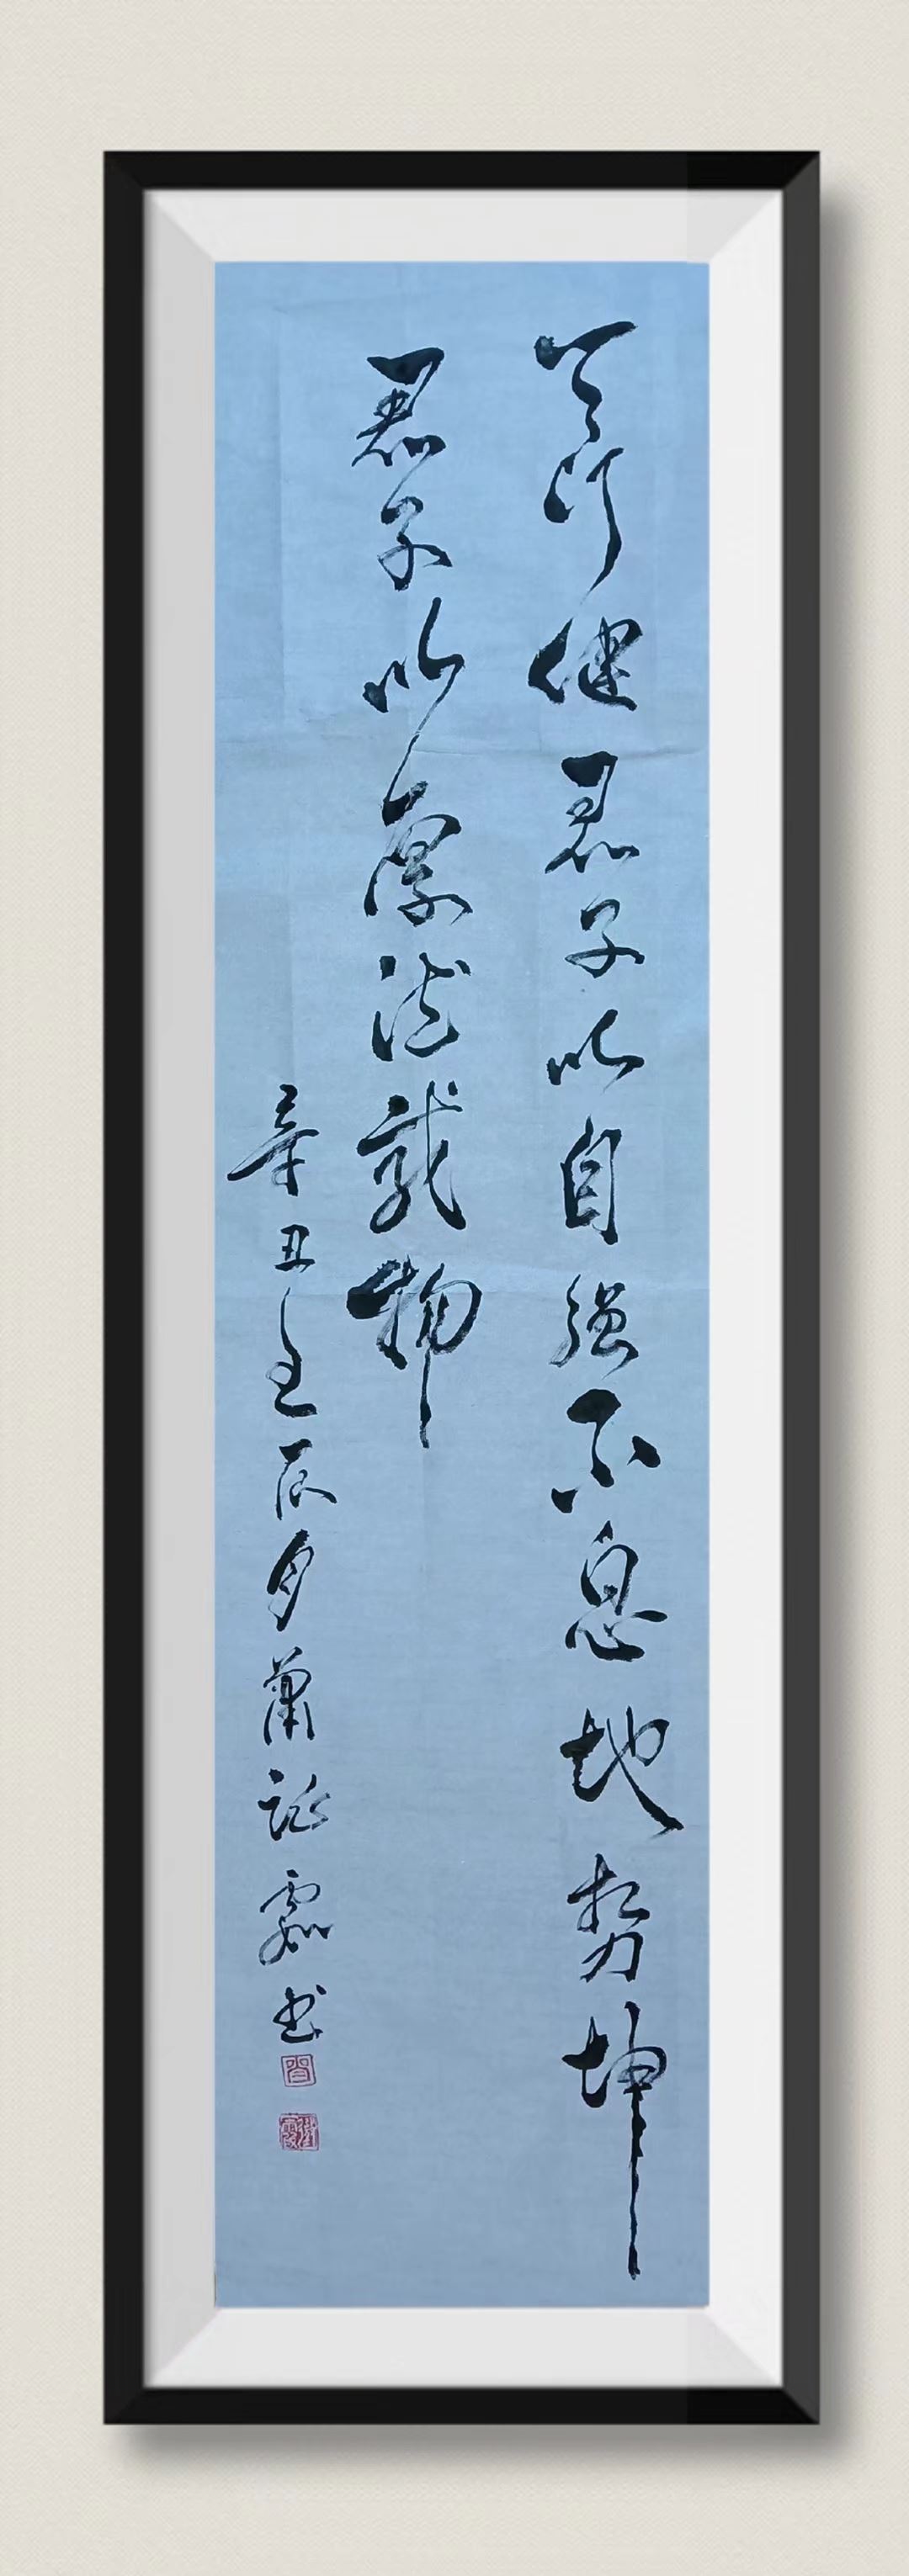 天行健君子以自强不息地势坤
君子以厚德载物
辛丑之夏月萧
书